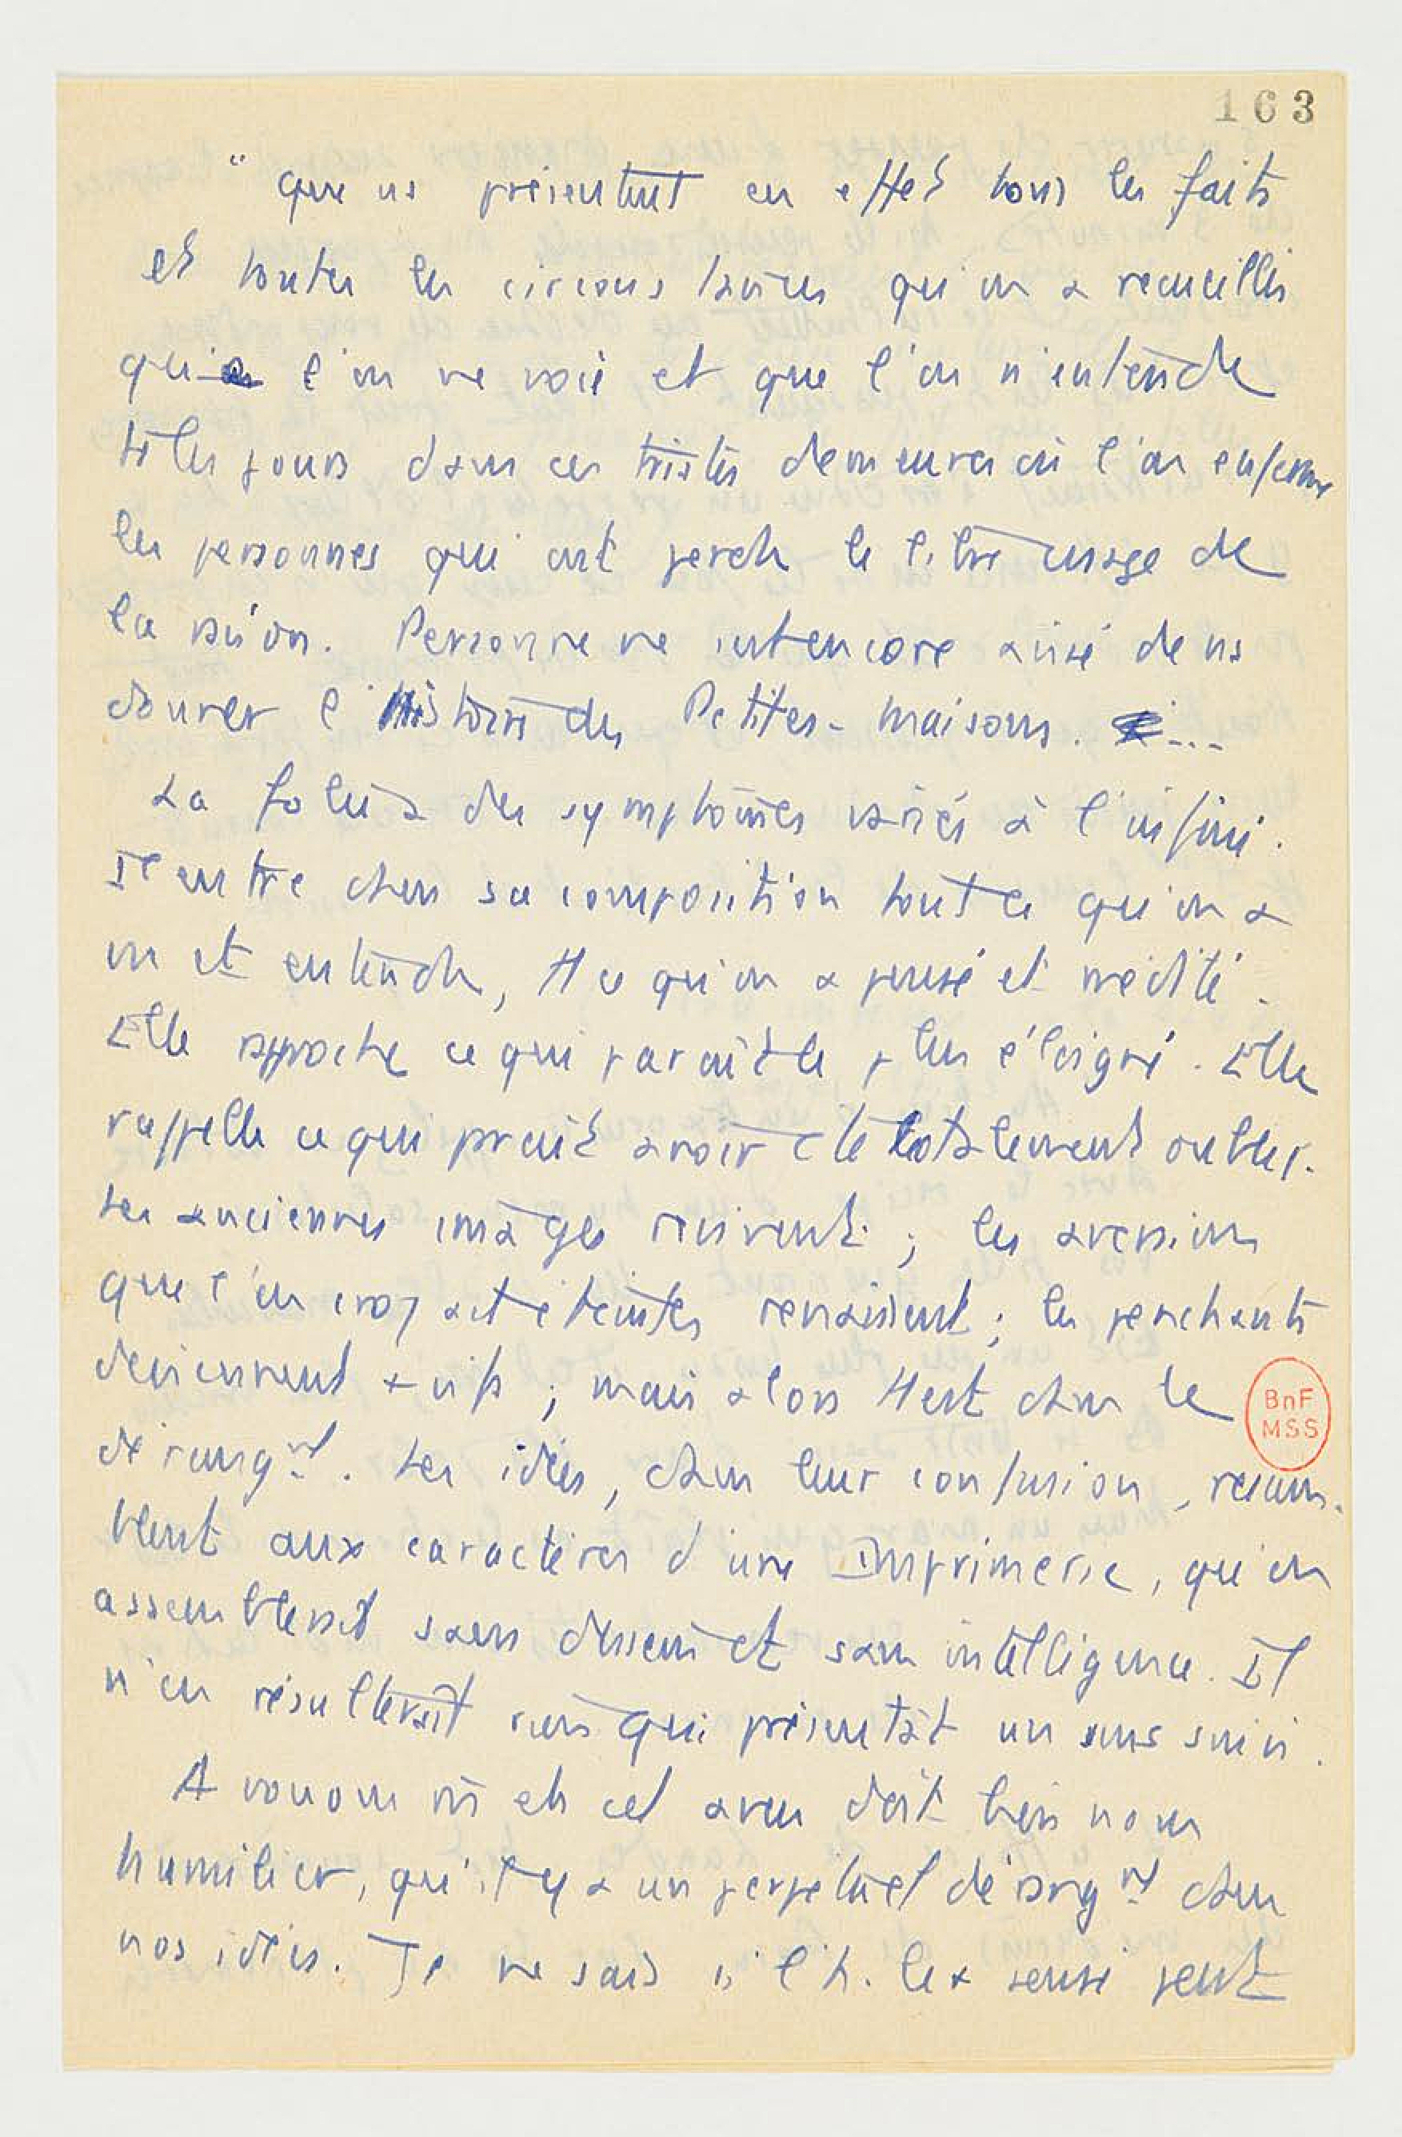 163
" que ns présentent en effet tous les faits
et toutes les circonstances qu'on a recueillis
que l'on ne voie et que l'on n'entende
ts les jours dans ces tristes demeures où l'on enferme
les personnes qui ont perdu le libre usage de
la raison. Personne ne s'est encore avisé de ns
donner l'Histoire des Petites-maisons. ...
La folie a des symptômes variés à l'infini.
Il entre dans sa composition tout ce qu'on a
vu et entendu, tt ce qu'on a pensé et médité.
Elle rapproche ce qui paraît le plus éloigné. Elle
rappelle ce qui paraît avoir été totalement oublié.
Les anciennes images revivent ; les aversions
que l'on croyait éteintes renaissent ; les penchants
deviennent + vifs ; mais alors tt est dans le
dérangnt. Les idées, dans leur confusion, ressem-
blent aux caractères d'une Imprimerie, qu'on
assemblerait sans dessein et sans intelligence. Il
n'en résulterait rien qui présentât un sens suivi.
Avouons et cet aveu doit bien nous
humilier, qu'il y a un perpétuel dérangnt dans
nos idées. Je ne sais si l'h. le + sensé peut
BnF
MSS